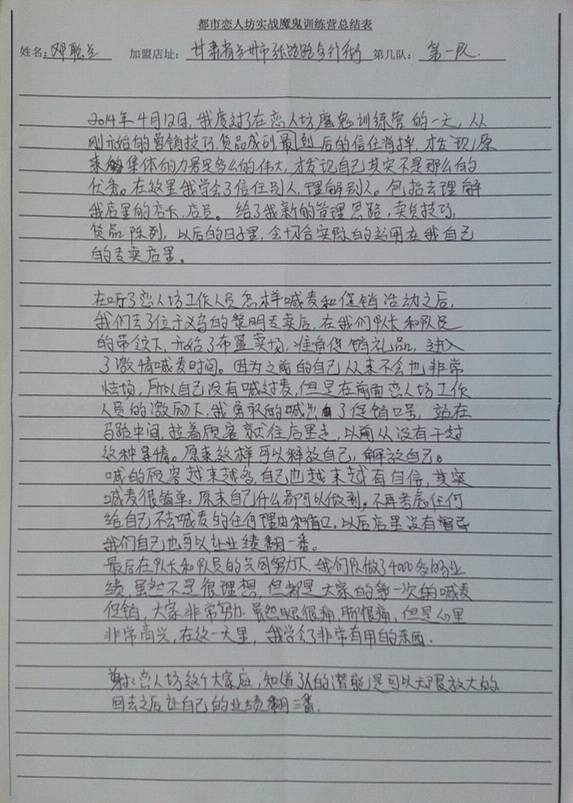 都市恋人坊实战魔鬼训练营总结表
姓名: 加盟店址: 甘肃省兰州市张掖路步行街 第几队: 第一队.
2014年4月12日,我度过了在恋人坊魔鬼训练营的一天,从
刚开始的营销技巧,货品成列最到后的信任背摔,才发现原
来 集体的力量是多么的伟大,才发现自己其实不是那么的
优秀。在这里我学会了信任别人,理解别人。包括去理解
我店里的店长,店员。给了我新的管理思路,卖货技巧,
货品陈列,以后的日子里,会切合实际的运用在我自己
的专卖店里。
在听了恋人坊工作人员怎样喊麦和促销活动之后,
我们去了位于义乌的黎明专卖店,在我们队长和队员
的带领下,开始了布置卖场,准备促销礼品,进入
了激情喊麦时间。因为之前的自己从来不会也非常
怯场,所以自己没有喊过麦,但是在前面恋人坊工作
人员的激励下,我勇敢的喊出了促销口号,站在
马路中间,拉着顾客就往店里走,以前从没有干过
这种事情。原来这样可以释放自己,解放自己。
喊的顾客越来越多,自己也越来越有自信,其实
喊麦很简单。原来自己什么都可以做到。不再考虑任何
给自己不去喊麦的任何理由和借口,以后店里没有
我们自己也可以让业绩翻一番。
最后在队长和队员的共同努力下,我们队做了4000多的业
绩,虽然不是很理想,但都是大家的第一次的喊麦
促销,大家非常努力,虽然 很痛,脚很痛,但是心里
非常高兴,在这一天里,我学会了非常有用的东西.
谢谢恋人坊这个大家庭,知道了人的潜能是可以无限放大的
回去之后让自己的业绩翻三番.